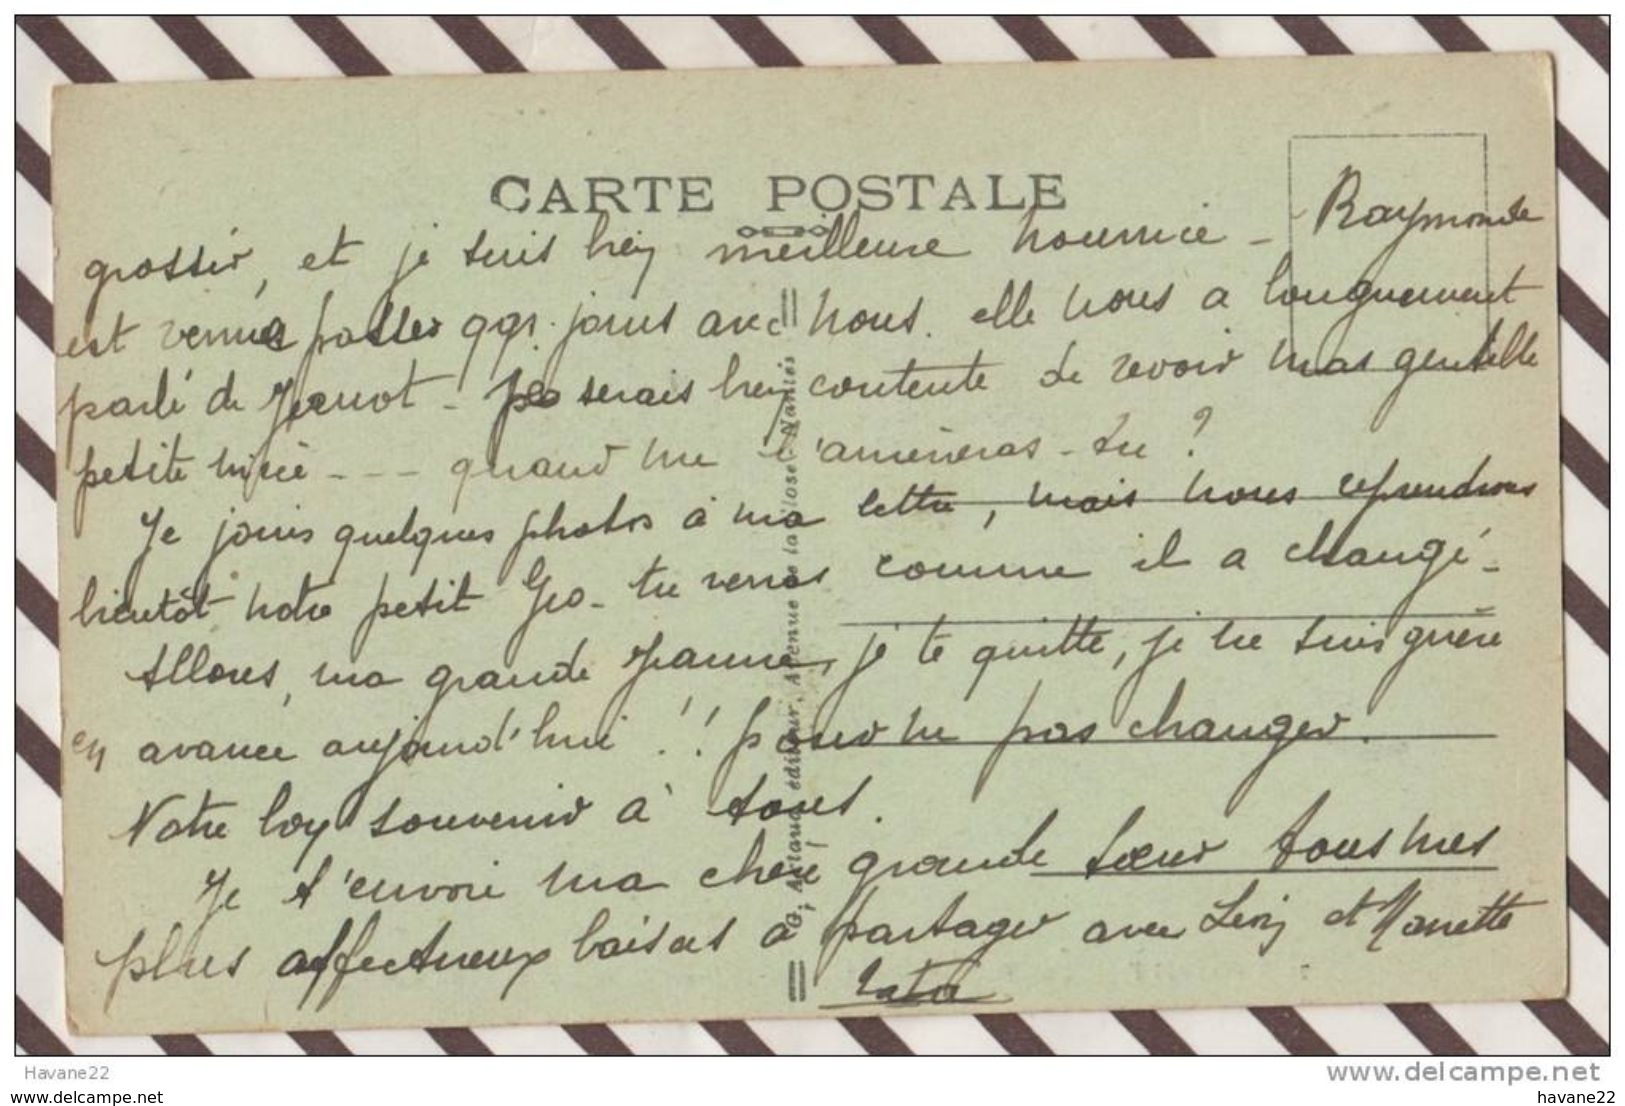 CARTE POSTALE
grossir, et je suis bien meilleure nourrice - Raymonde
est venue passer qqs. jours avec nous. elle nous a longuement
parlé de - Je serais bien contente de revoir ma gentille
petite nièce - - - quand me l'amèneras-tu ?
Je joins quelques photos à ma lettre, mais nous reprendrons
bientôt notre petit Geo - tu verras comme il a changé -
Allons, ma grande Jeanne, je te quitte, je ne suis guère
en avance aujourd'hui !! pour ne pas changer.
Notre bon souvenir à tous.
Je t'envoie ma chère grande sœur tous mes
plus affectueux baisers à partager avec et Nanette
G. Artaud, éditeur, Avenue de la Close - Nantes
Havane22
www.delcampe.net
havane22
havane22